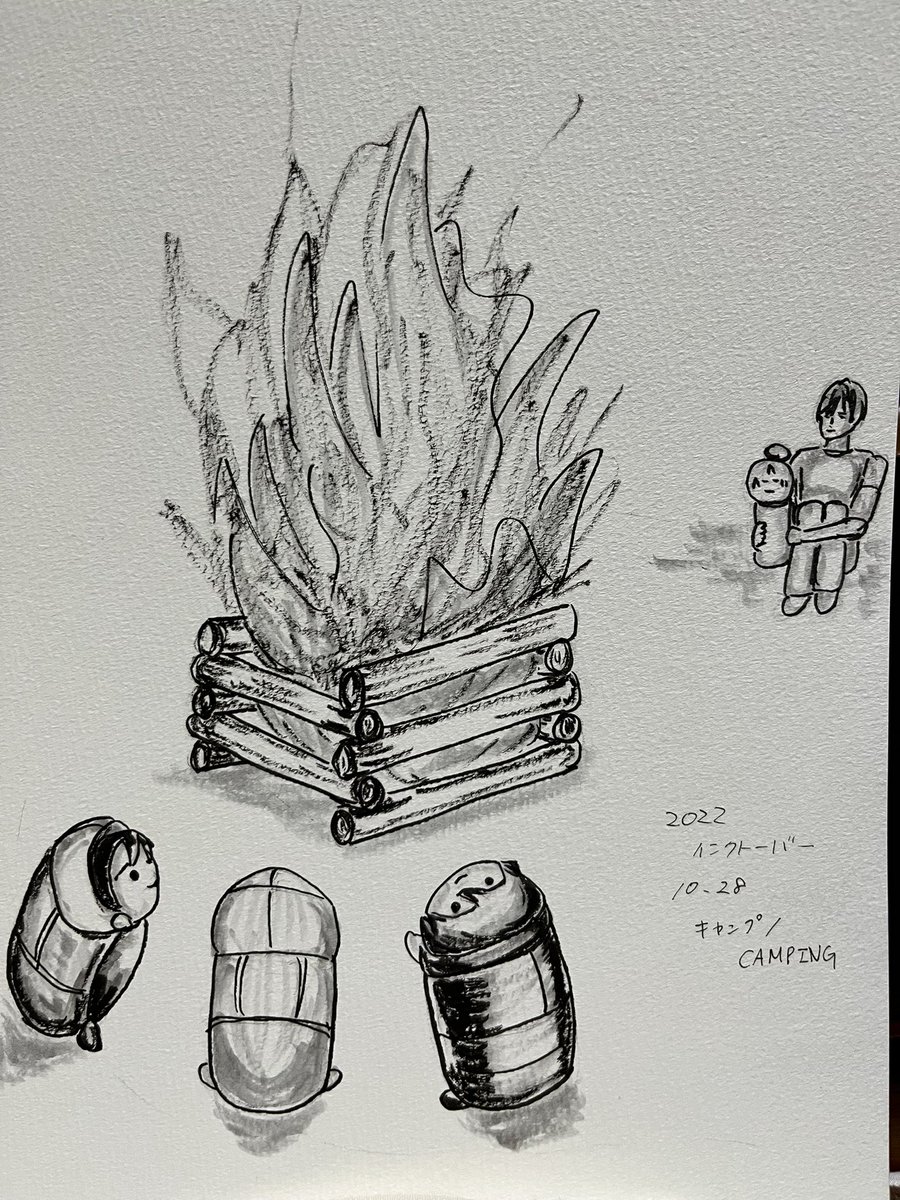 2022
インクトーバー
10-28
キャンプ/
CAMPING